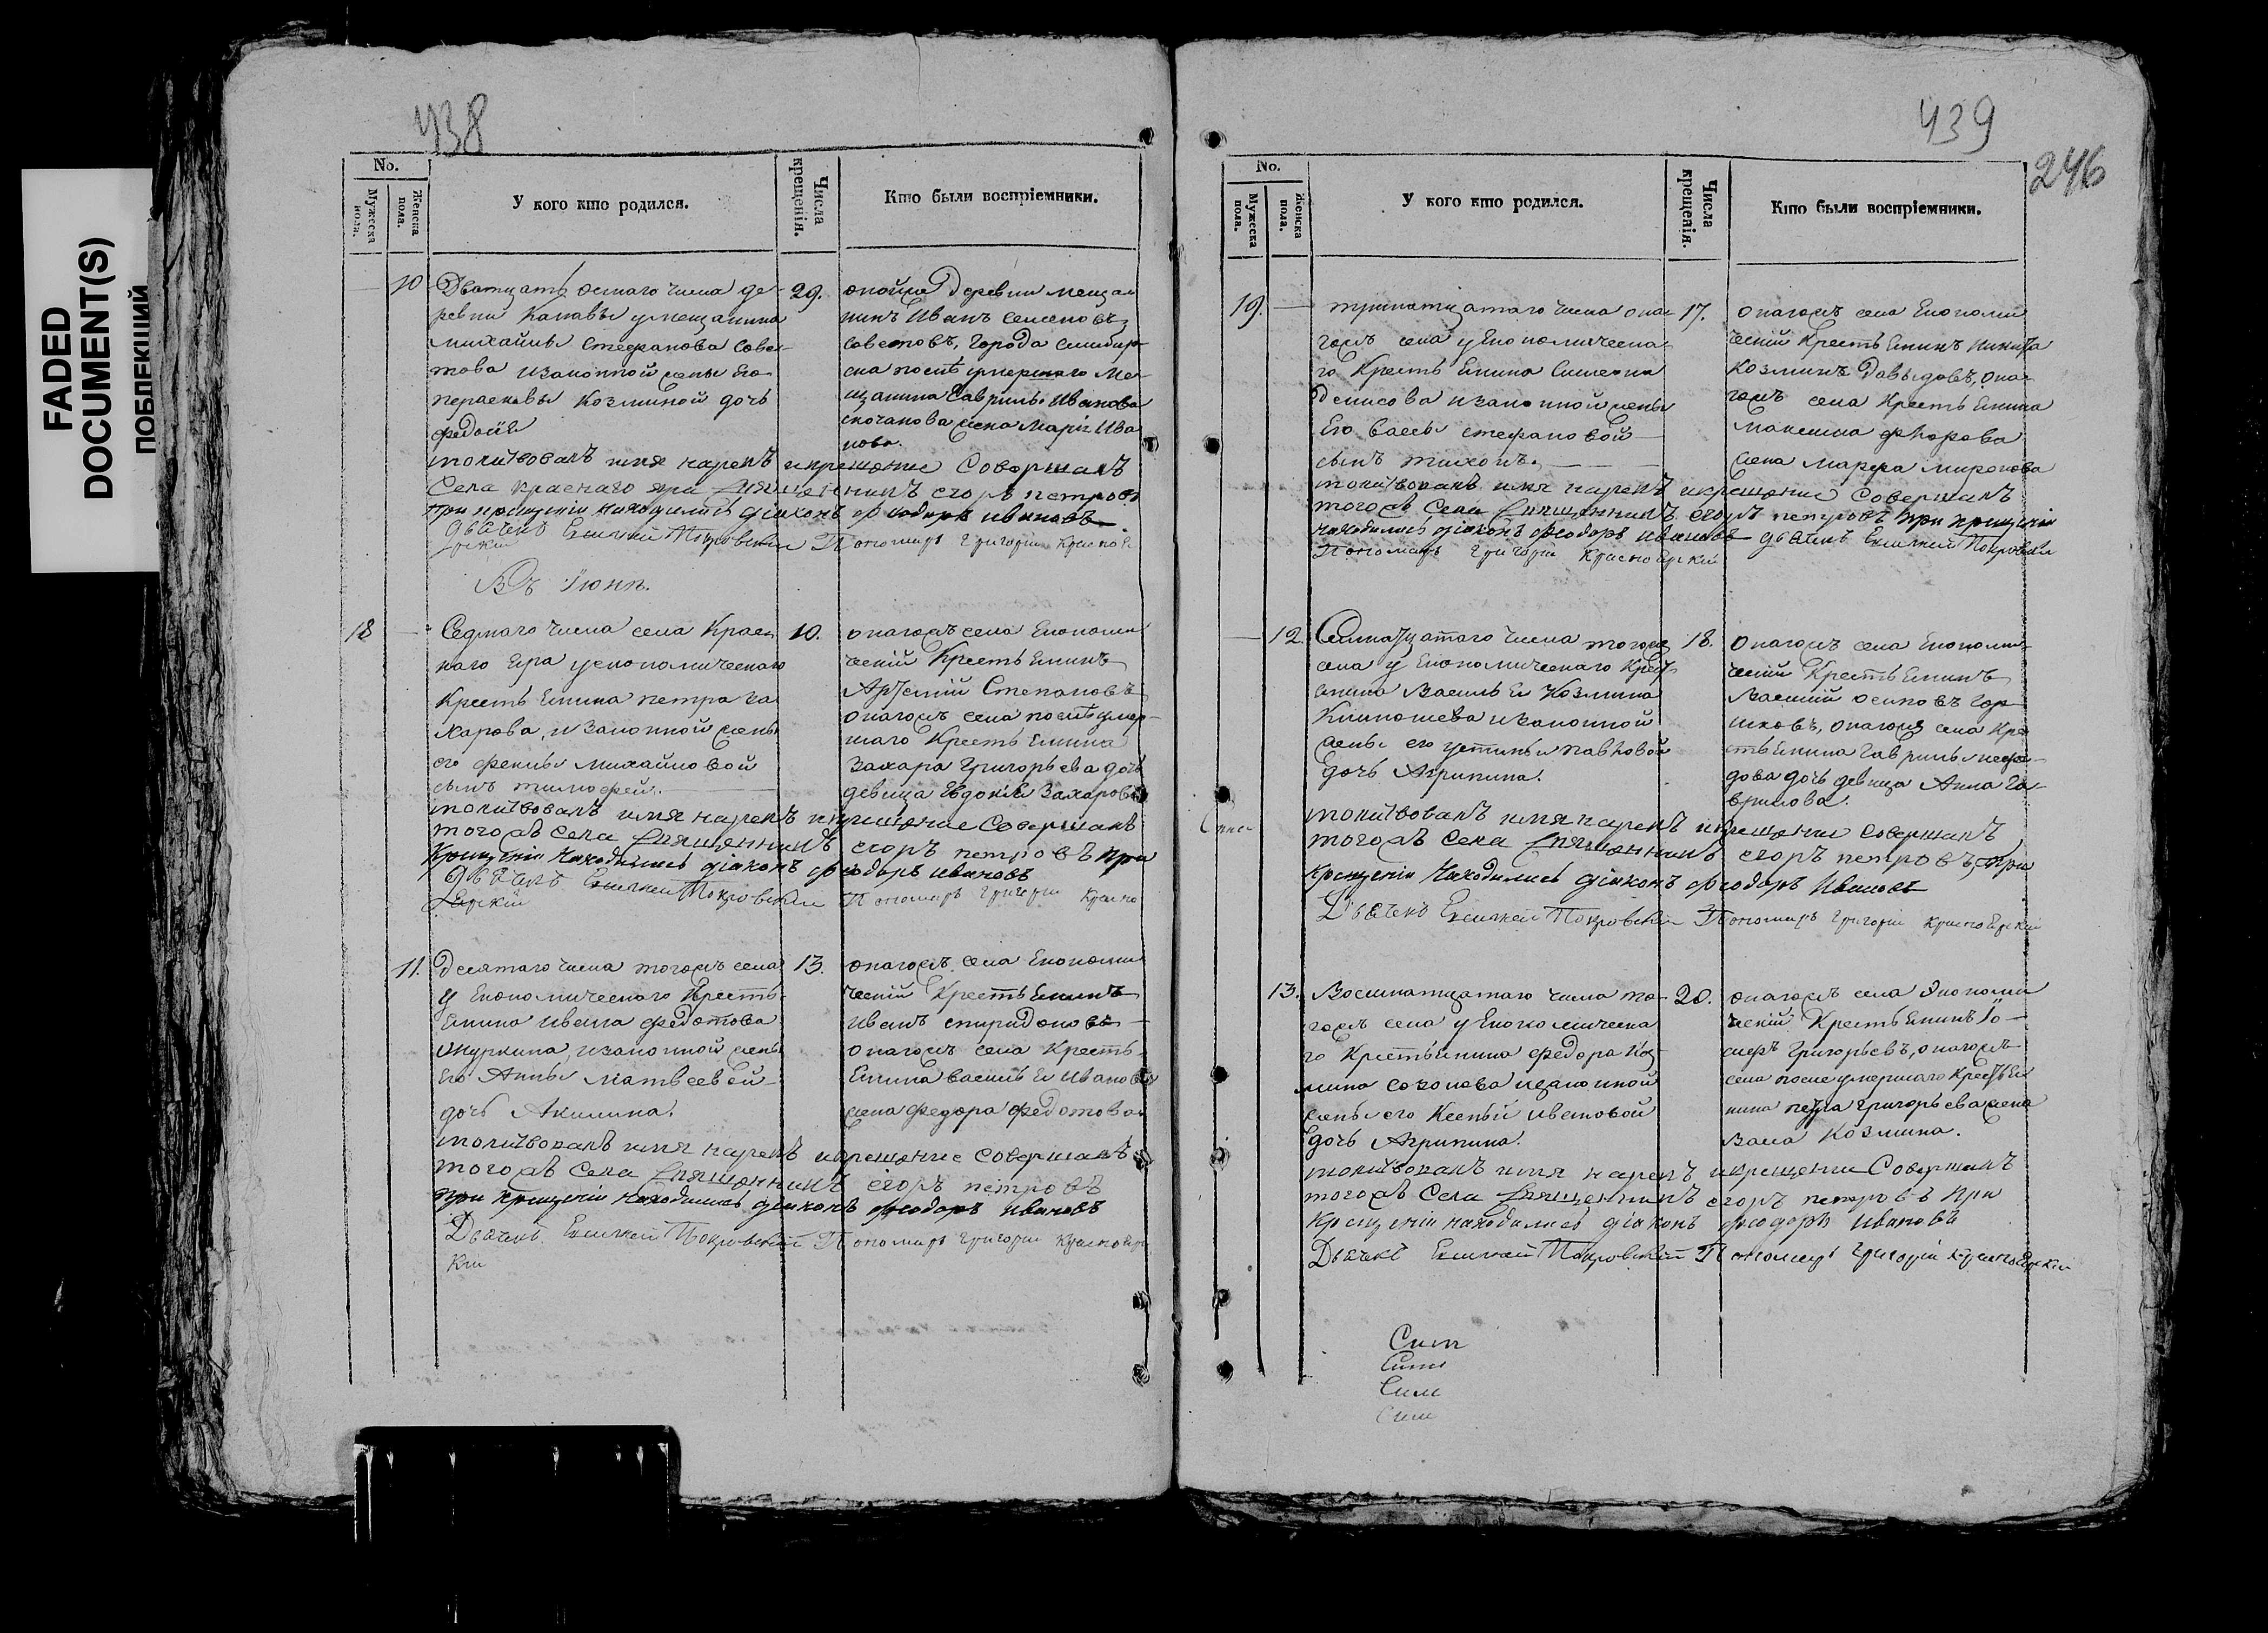 FADED
DOCUMENT(S)
ПОБЛЕКШИЙ
438
No.
Мужеска пола.
Женска пола.
У кого кто родился.
Числа крещенія.
Кто были воспріемники.
10
Дватцать осмаго числа де-
ревни Канавы у мещанина
михайлы стефанова Сове-
това изаконной жены Его
пераскавьи Козминой дочь
федосія
29.
онойже деревни мещан
нинъ Иванъ семеновъ
советовъ, города симбир-
ска послѣ умершаго Ме-
щанина Гаврилы Иванова
жена Марія Ива
нова.
молитвовалъ имя нарекъ икрещение Совершалъ
Села краснаго яра Священникъ егоръ петровъ
при крещении находились діаконъ феодоръ ивановъ
Дьячекъ Евсигней Покровский Пономаръ Григорий Красноя
рский
Въ Июнѣ.
18
Седмаго числа села Крас
наго Яра уекономическаго
Крестьянина петра За
харова, изаконной жены
его феклы михайловой
сынъ тимофей.
10.
онагожъ села Економи
ческий Крестьянинъ
Артемий Степановъ
онагожъ села послѣ умер-
шаго Крестьянина
Захара Григорьева дочь
девица Евдокия Захарова
молитвовалъ имя нарекъ икрещение Совершалъ
тогожъ Села Священникъ егоръ петровъ при
Крещении находились діаконъ феодоръ ивановъ
Дьячекъ Евсигней Покровский Пономаръ Григорий Красно
Ярский
11.
Десятаго числа тогожъ села
у Економическаго Кресть-
янина ивана федотова
Журкина, изаконной жены
Его Анны матвеевой
дочь Акилина.
13.
онагожъ села Економи
ческий Крестьянинъ
иванъ спиридоновъ
онагожъ села Кресть-
янина василья Иванова
жена федора федотова
молитвовалъ имя нарекъ икрещение совершалъ
тогожъ Села Священникъ егоръ петровъ
при крещении находились діаконъ феодоръ ивановъ
Дьячекъ Евсигней Покровский Пономаръ Григорий Краснояр
кий
439
246
No.
Мужеска пола.
Женска пола.
У кого кто родился.
Числа крещенія.
Кто были воспріемники.
19.
тринатцатаго числа она-
гожъ села у Економическа
го Крестьянина Симеона
Денисова изаконной жены
Его Васы стефановой
сынъ тихонъ.
17.
онагожъ села Економи
ческий Крестьянинъ Никита
Козминъ Давыдовъ, она-
гожъ села Крестьянина
максима фролова
жена марфа миронова
молитвовалъ имя нарекъ икрещение Совершалъ
тогожъ Села Священникъ егоръ петровъ при крещении
находились діаконъ феодоръ ивановъ дьячекъ Евсигней Покровский
Пономаръ Григорий Красноярский
12.
Семнатцатаго числа тогожъ
села у Економическаго Крест
янина Василья Козмина
изаконной
жены его устиньи павловой
дочь Агрипина.
18.
онагожъ села Економи-
ческий Крестьянинъ
Василий Осиповъ Гор
шковъ, онагожъ села Кре
стьянина Гаврилы нефе-
дова дочь девица Анна Га-
врилова.
молитвовалъ имя нарекъ икрещение совершалъ
тогожъ Села Священникъ егоръ петровъ, при
Крещении находились діаконъ феодоръ Ивановъ
Дьячекъ Евсигней Покровский Пономаръ Григорий Красноярский
13.
Восемнатцатаго числа то-
гожъ села у Економическа
го Крестьянина федора Коз-
мина соколова изаконной
жены его Ксеньи ивановой
дочь Агрипина.
20.
онагожъ села Экономи
ческий Крестьянинъ Іо-
сифъ Григорьевъ, онагожъ
села после умершаго Крестья
нина петра Григорьева жена
Васа Козмина.
молитвовалъ имя нарекъ икрещении Совершалъ
тогожъ Села Священникъ егоръ петровъ При
Крещении находились діаконъ феодоръ Ивановъ
Дьячекъ Евсигней Покровский Пономаръ Григорий Красноярский